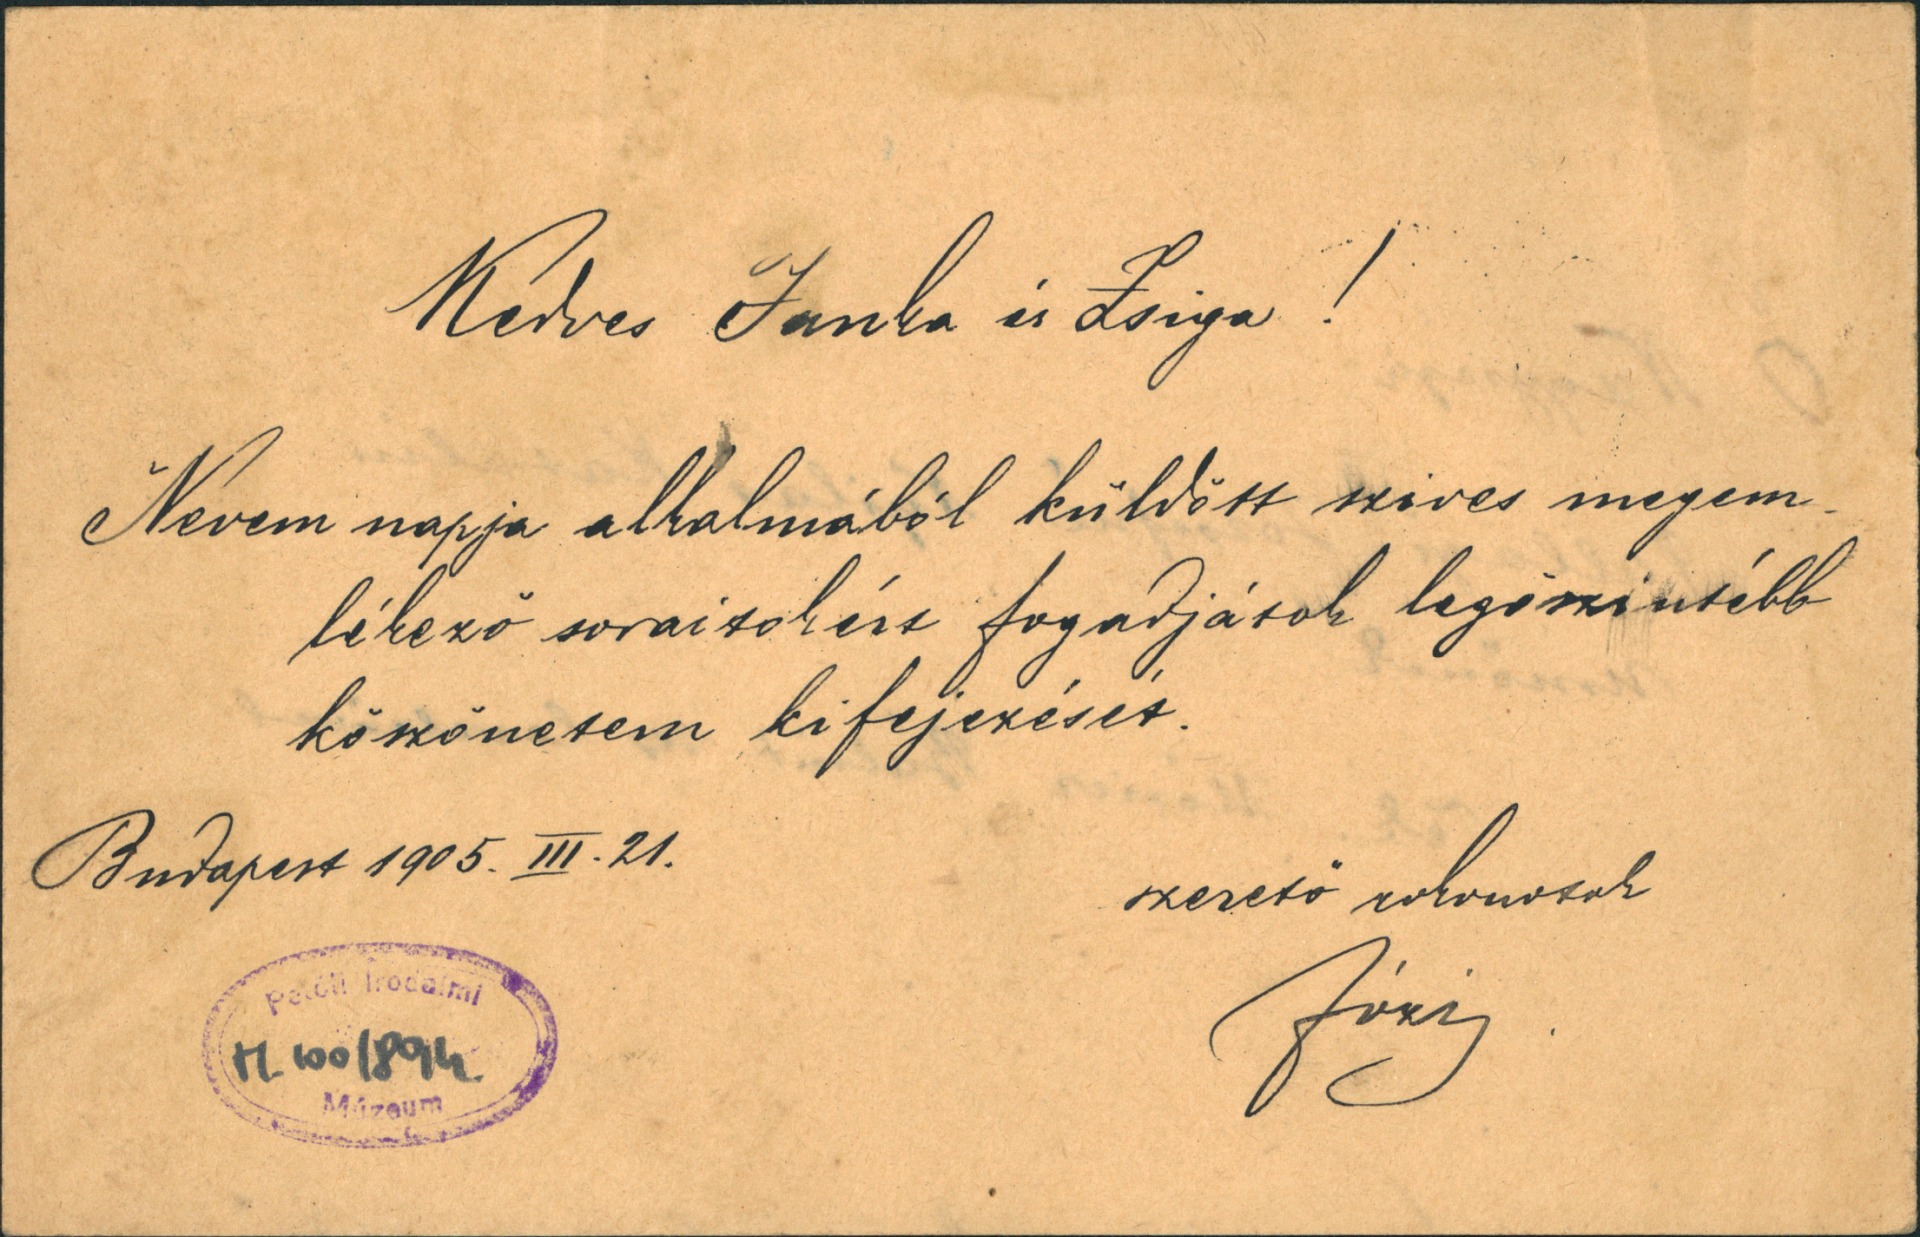 Kedves Janka és Zsiga !
Nevem napja alkalmából küldött szives megem-
lékező soraitokért fogadjátok legőszintébb
köszönetem kifejezését.
Budapest 1905. III. 21.
szerető rokonotok
Józsi
Petőfi Irodalmi
Múzeum